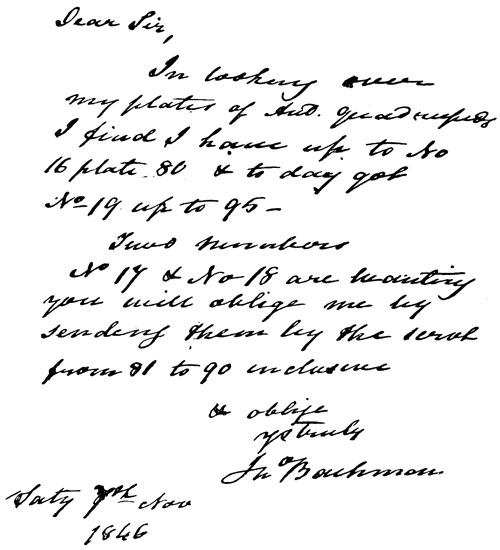 Dear Sir,
In looking over
my plates of Aud. quadrupeds
I find I have up to No
16 plate 80 & to day got
No 19 up to 95 –
Two numbers
No 17 & No 18 are wanting
you will oblige me by
sending them by the
from 81 to 90 inclusive
& oblige
ys truly
Jno Bachman
Saty 7th Nov
1846